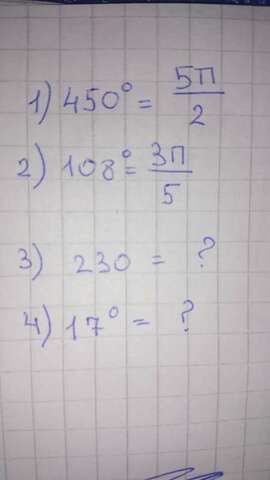 1) 450° = 5π/2
2) 108° = 3π/5
3) 230 = ?
4) 17° = ?